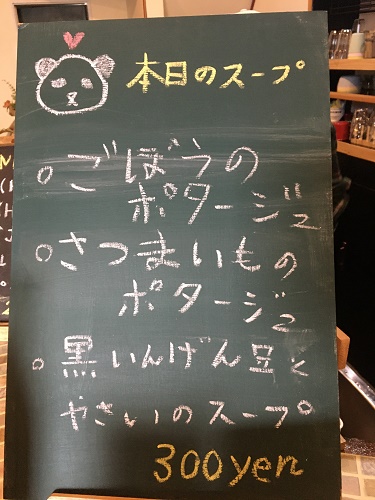 本日のスープ
○ごぼうの
ポタージュ
○さつまいもの
ポタージュ
○黒いんげん豆と
やさいのスープ
300yen